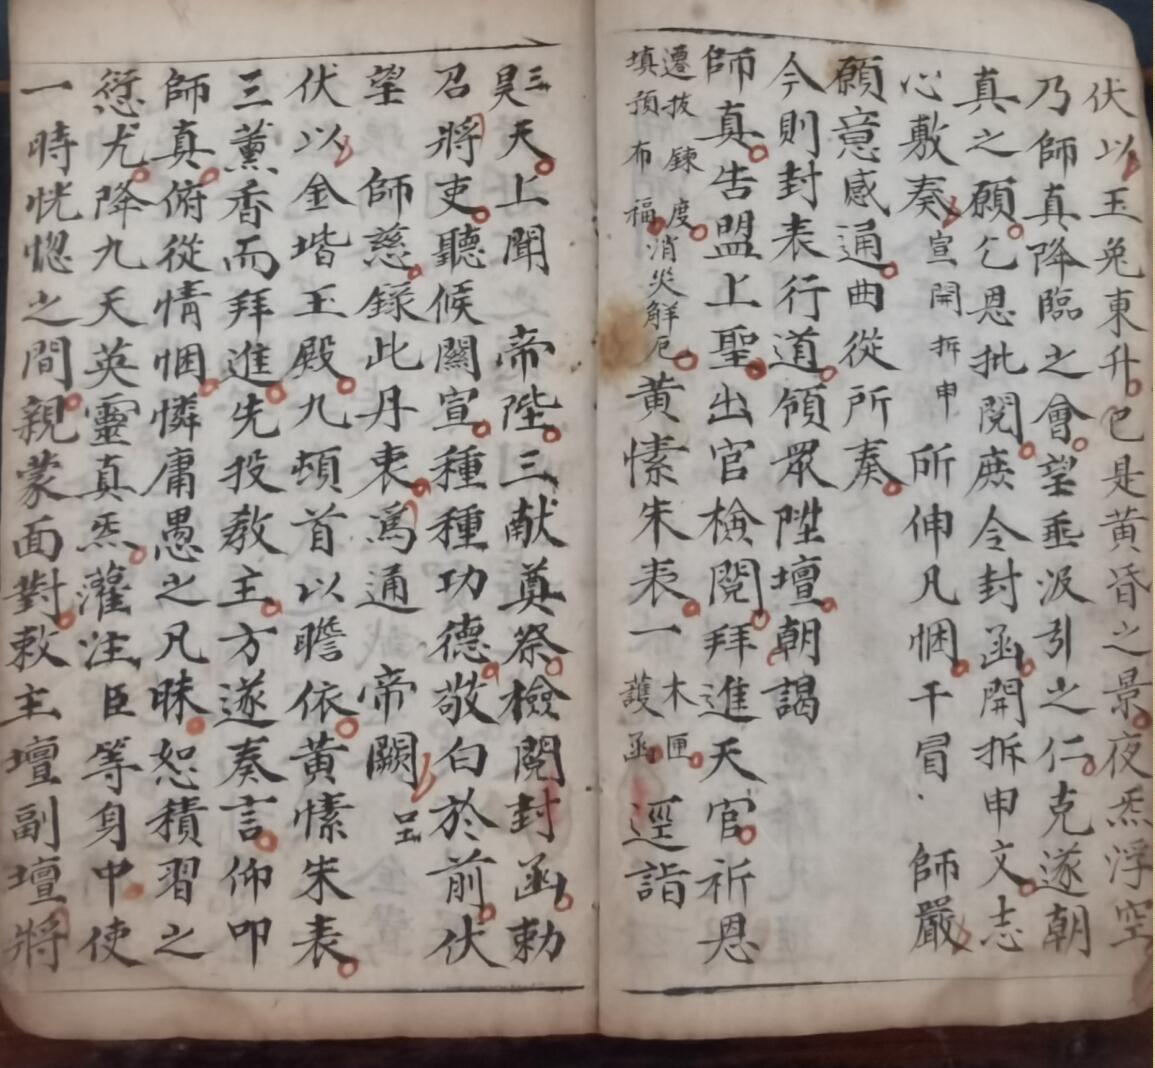 伏以玉兔東升已是黄昏之景夜炁浮空
乃師真降臨之會望垂汲引之仁克遂朝
真之願乞恩批閲庶令封函開拆申文志
心敷奏宣開拆申所伸凡悃干冒師嚴
願意感通曲從所奏
今則封表行道領眾陞壇朝謁
師真告盟上聖出官檢閲拜進天官祈恩
遷拔鍊度
填預布福
消災解厄黄愫朱表一
木匣
護函
逕詣
三
昊天上聞帝陛三献奠祭檢閲封函勅
召將吏聽候關宣種種功德敬白於前伏
望師慈錄此丹衷爲通帝闕
伏以金堦玉殿九頓首以瞻依黄愫朱表
三薰香而拜進先投教主方遂奏言仰叩
師真俯從情悃憐庸愚之凡昧恕積習之
愆尤降九天英靈真炁灌注臣等身中使
一時恍惚之間親蒙面對敕主壇副壇將